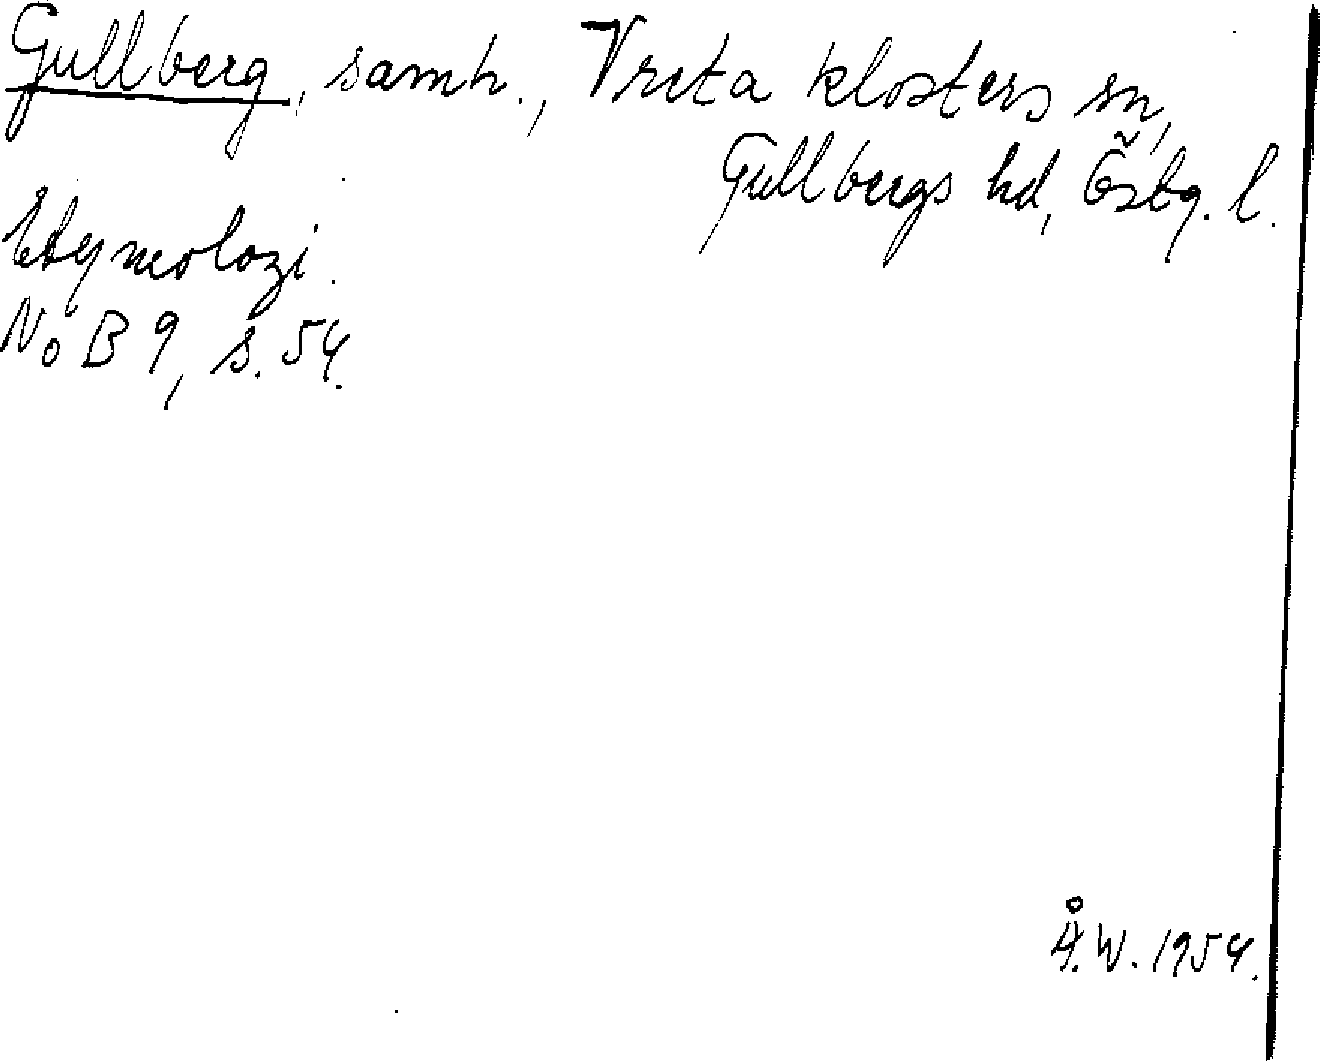 Gullberg, samh., Vreta klosters sn,
Gullbergs hd, Östg. l.
Etymologi.
NoB 9, s. 54.
Å.W. 1954.